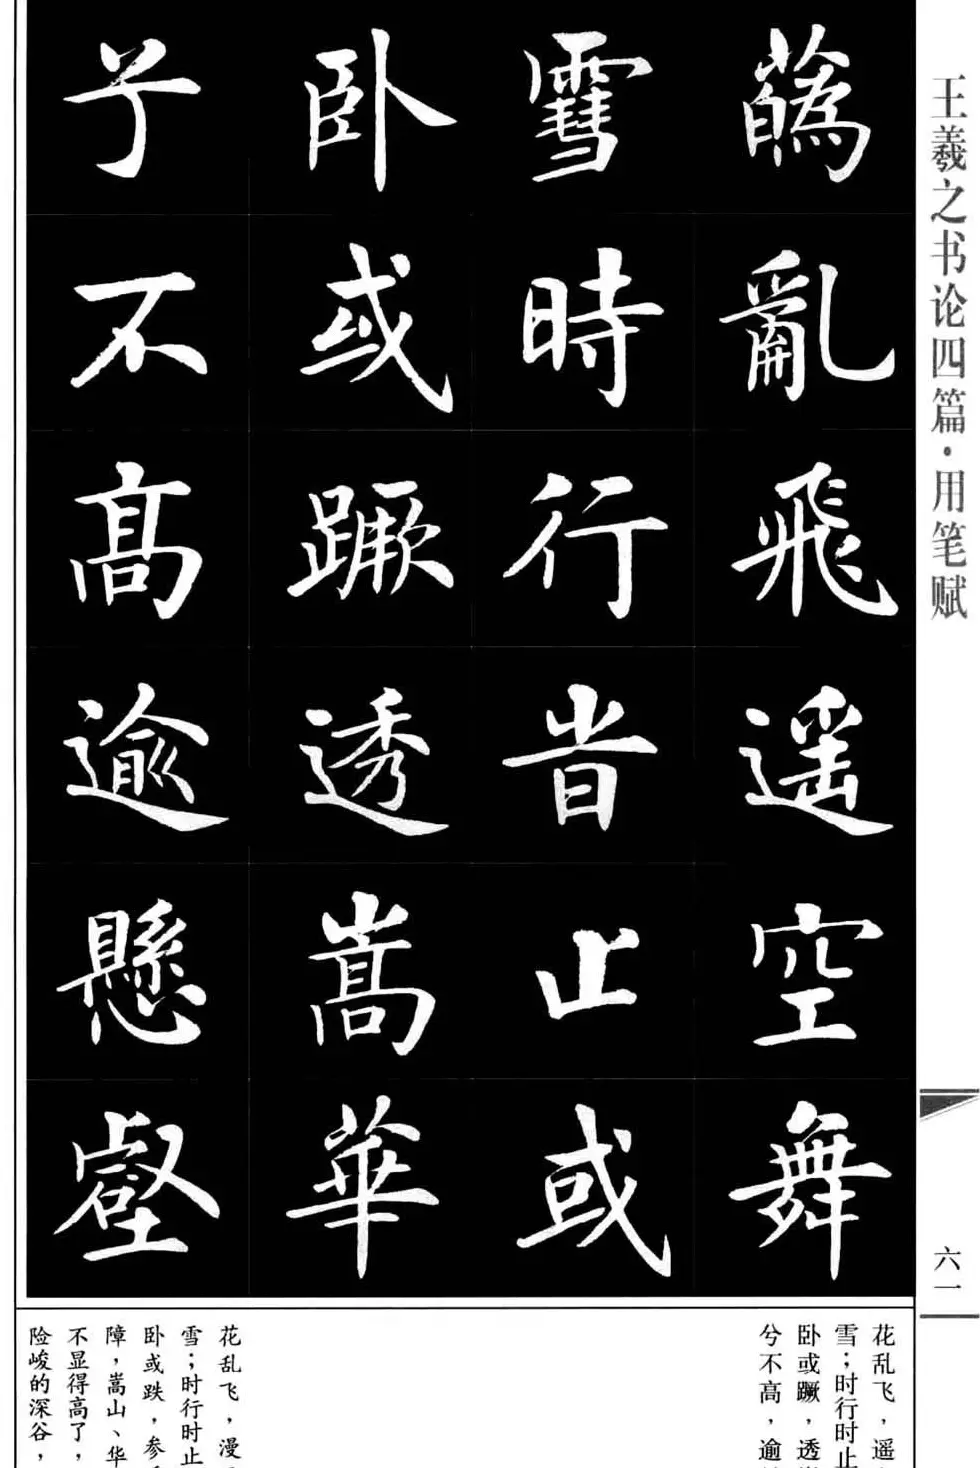 蘤亂飛遥空舞
雪時行旹止或
卧或蹶透嵩華
兮不高逾懸壑
王羲之书论四篇·用笔赋
六一
花乱飞，遥
雪；时行时止
卧或蹶，透
兮不高，逾
花乱飞，漫
雪；时行时止
卧或跌，参
障，嵩山、华
不显得高了，
险峻的深谷，